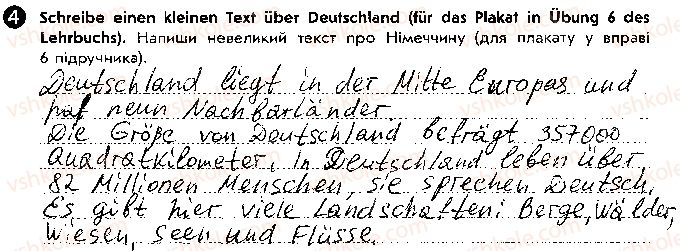 4 Schreibe einen kleinen Text über Deutschland (für das Plakat in Übung 6 des
Lehrbuchs). Напиши невеликий текст про Німеччину (для плакату у вправі
6 підручника).
Deutschland liegt in der Mitte Europas und
hat neun Nachbarländer.
Die Größe von Deutschland beträgt 357000
Quadratkilometer. In Deutschland leben über
82 Millionen Menschen, sie sprechen Deutsch.
Es gibt hier viele Landschaften: Berge, Wälder,
Wiesen, Seen und Flüsse.